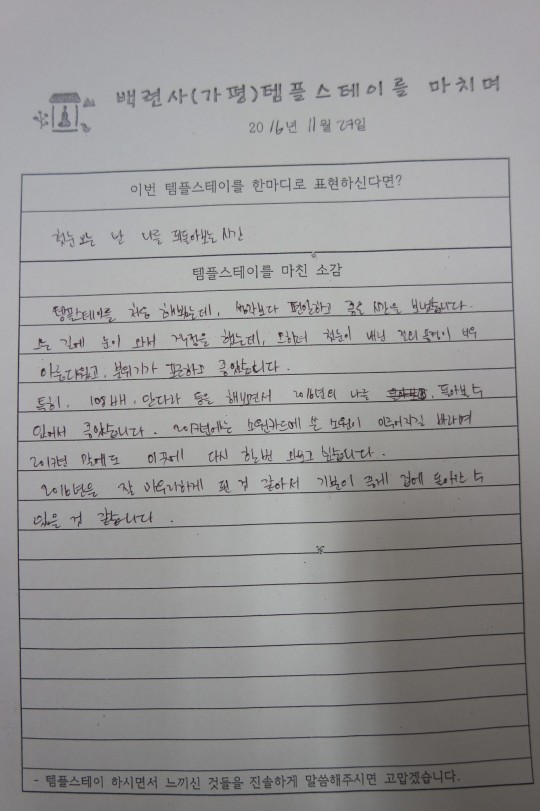 백련사(가평)템플스테이를 마치며
2016년 11월 27일
이번 템플스테이를 한마디로 표현하신다면?
첫눈 오는 날 나를 되돌아보는 시간
템플스테이를 마친 소감
템플스테이를 처음 해봤는데, 생각보다 편안하고 좋은 시간을 보냈습니다.
오는 길에 눈이 와서 걱정을 했는데, 오히려 첫눈이 내린 길의 풍경이 너무
아름다웠고, 분위기가 포근하고 좋았습니다.
특히, 108배, 만다라 등을 해보면서 2016년의 나를 돌아볼 수
있어서 좋았습니다. 2017년에는 소원카드에 쓴 소원이 이루어지길 바라며
2017년 말에도 이곳에 다시 한번 오고 싶습니다.
2016년을 잘 마무리하게 된 것 같아서 기분이 좋게 집에 돌아갈 수
있을 것 같습니다.
- 템플스테이 하시면서 느끼신 것들을 진솔하게 말씀해주시면 고맙겠습니다.